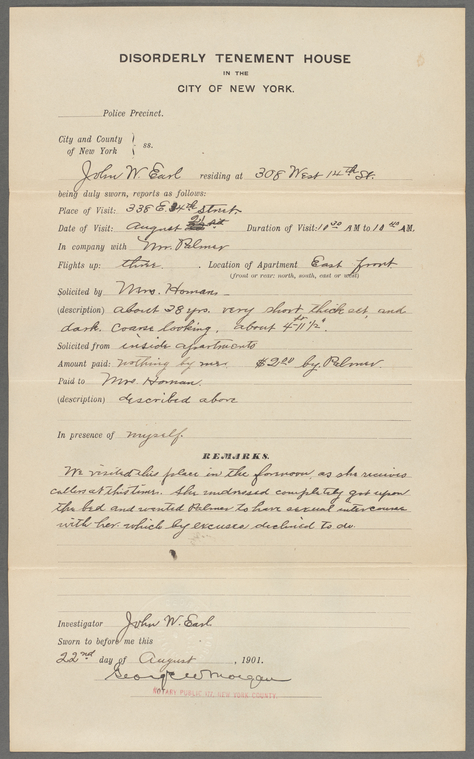 DISORDERLY TENEMENT HOUSE
IN THE
CITY OF NEW YORK.
Police Precinct.
City and County
of New York
ss.
John W. Earl residing at 308 West 14th St.
being duly sworn, reports as follows:
Place of Visit: 338 E. 24th Street
Date of Visit: August Duration of Visit: 10 30 AM to 10 40 AM.
In company with Wm. Palmer
Flights up: three. Location of Apartment East front
(front or rear: north, south, east or west)
Solicited by Mrs. Homan
(description) about 28 yrs. very short, thick set, and
dark. coarse looking, about 4 ft 11 1/2.
Solicited from inside apartments
Amount paid: nothing by me. $2.00 by Palmer.
Paid to Mrs. Homan.
(description) described above
In presence of myself.
REMARKS.
We visited this place in the forenoon, as she receives
callers at this time. She undressed completely got upon
the bed and wanted Palmer to have sexual intercourse
with her which by excuses declined to do.
Investigator John W. Earl
Sworn to before me this
22nd day of August, 1901.
George W Morgan
NOTARY PUBLIC NEW YORK COUNTY.